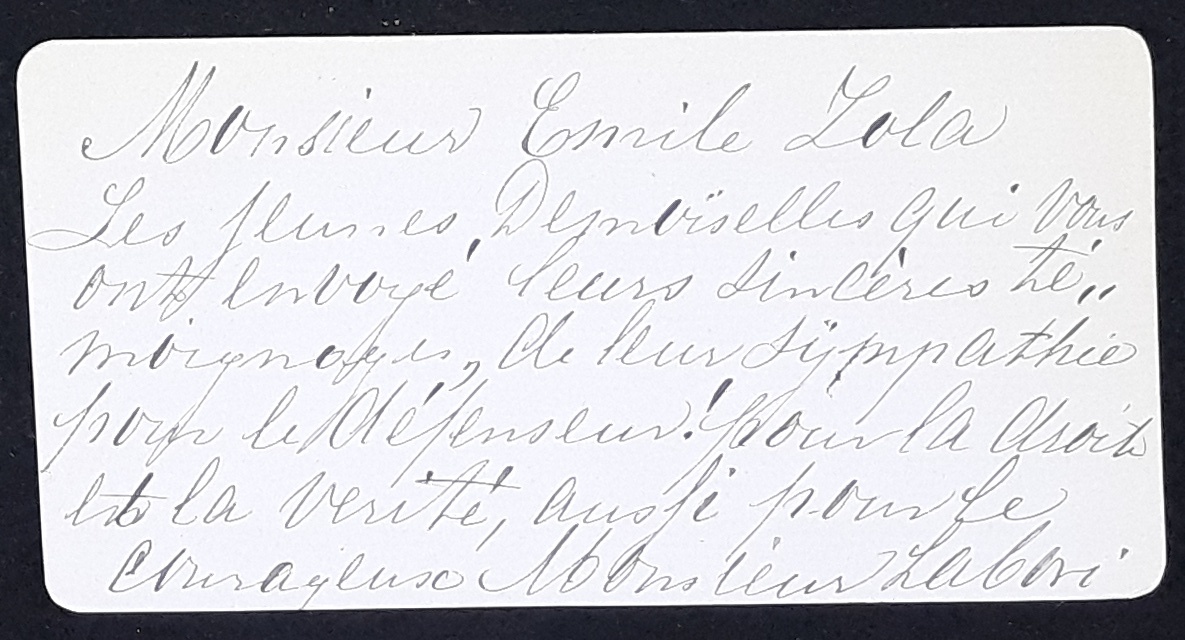 Monsieur Emile Zola
Les jeunes, Demoiselles qui vous
ont envoyé leurs sincères té„
moignages, de leur sÿmpathie
pour le défenseur! pour la droite
et la verité, aussi pour le
courageuse Monsieur Labori